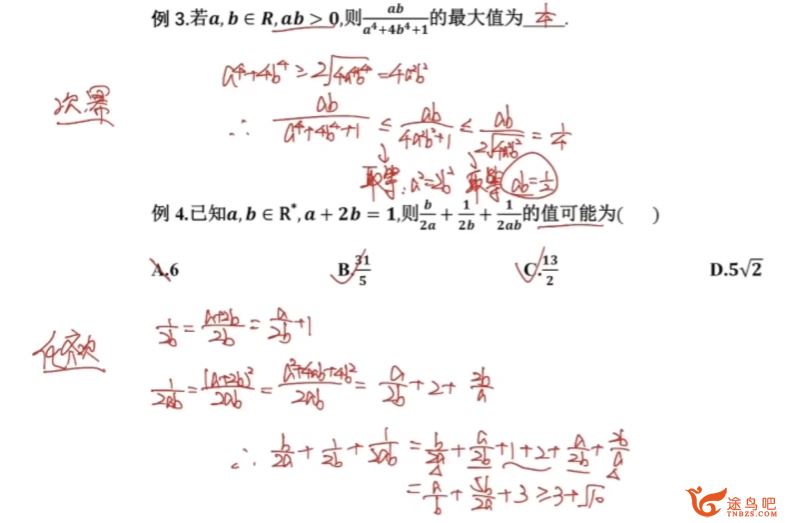 例 3.若a, b ∈ R, ab > 0,则 ab/(a⁴+4b⁴+1) 的最大值为 1/4 .
a⁴+4b⁴ ≥ 2√(4a⁴b⁴) = 4a²b²
次幂
∴ ab/(a⁴+4b⁴+1) ≤ ab/(4a²b²+1) ≤ ab/(2√(4a²b²)) = 1/4
取等: a²=2b² 取等 ab=1/2
例 4.已知a, b ∈ R*, a + 2b = 1,则 b/2a + 1/2b + 1/2ab 的值可能为( )
A.6 B.31/5 C.13/2 D.5√2
1/2b = (a+2b)/2b = a/2b + 1
化齐次
1/2ab = (a+2b)²/2ab = (a²+4ab+4b²)/2ab = a/2b + 2 + 2b/a
∴ b/2a + 1/2b + 1/2ab = b/2a + a/2b + 1 + 2 + a/2b + 2b/a
= a/b + 5b/2a + 3 ≥ 3+√10
途鸟吧
TNBZS.COM